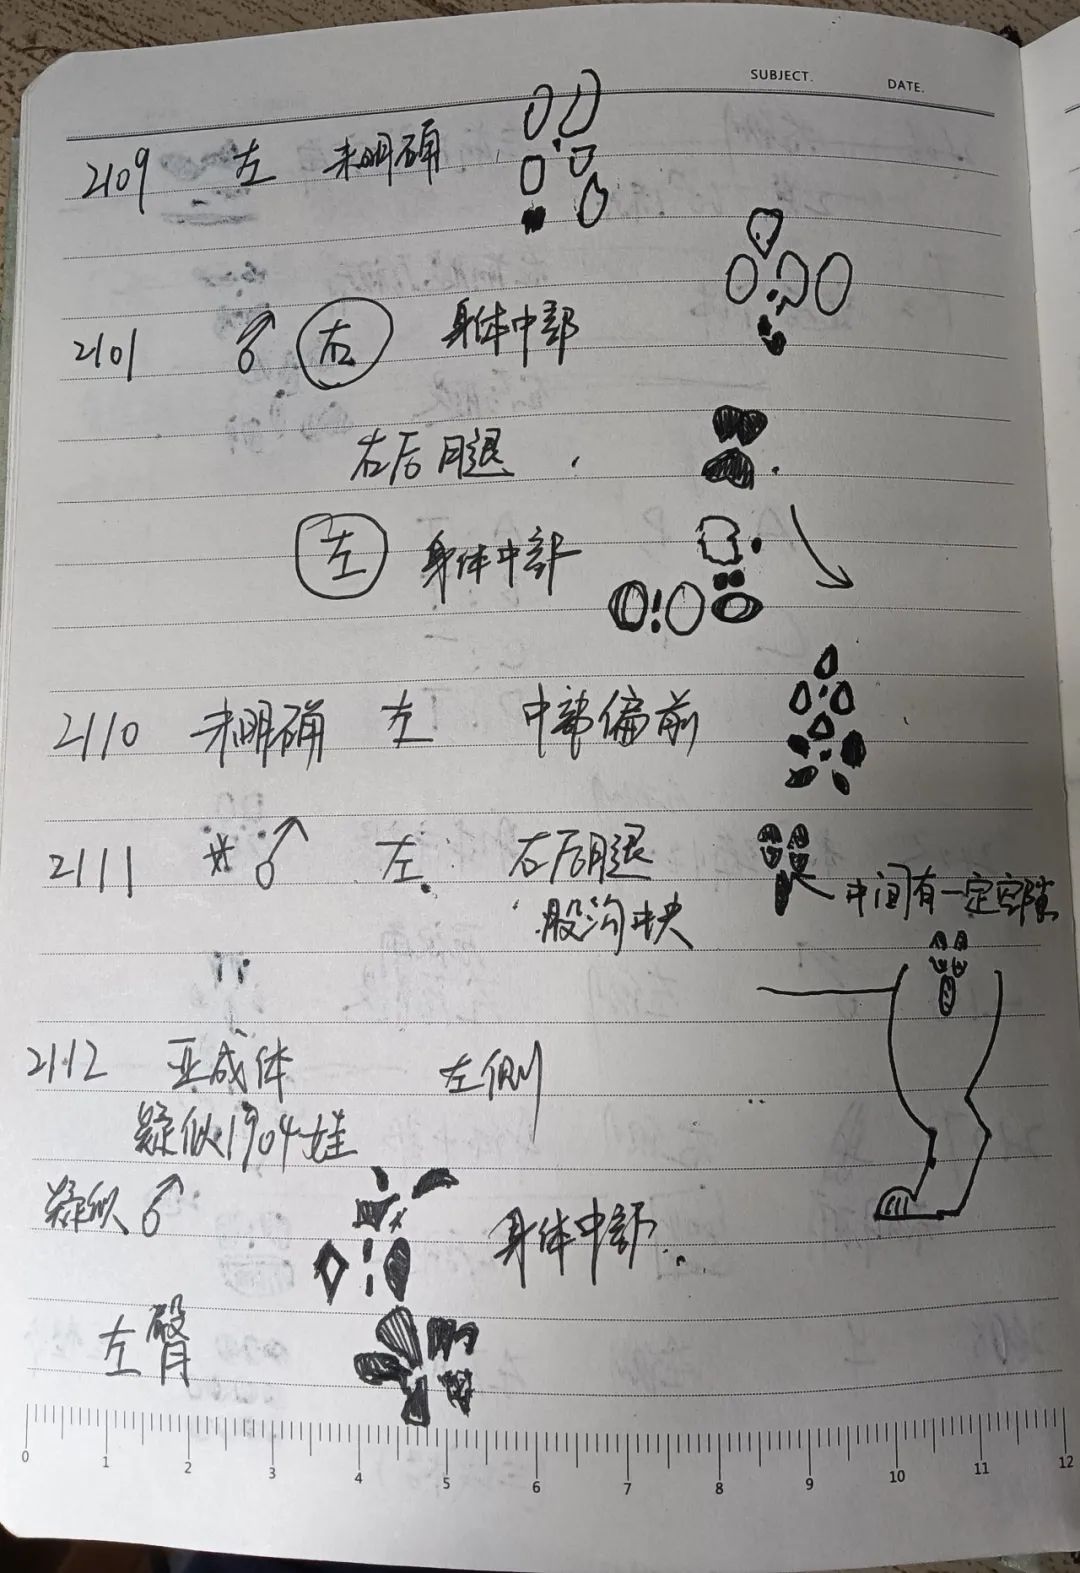 SUBJECT. DATE.
2109 左 未明确
2101 ♂ 右 身体中部
右后腿
左 身体中部
2110 未明确 左 中部偏前
2111 ♂ 左 右后腿
中间有一定空隙
股沟中央
2112 亚成体 左侧
疑似1904娃
疑似♂
身体中部
左臀
0 1 2 3 4 5 6 7 8 9 10 11 12